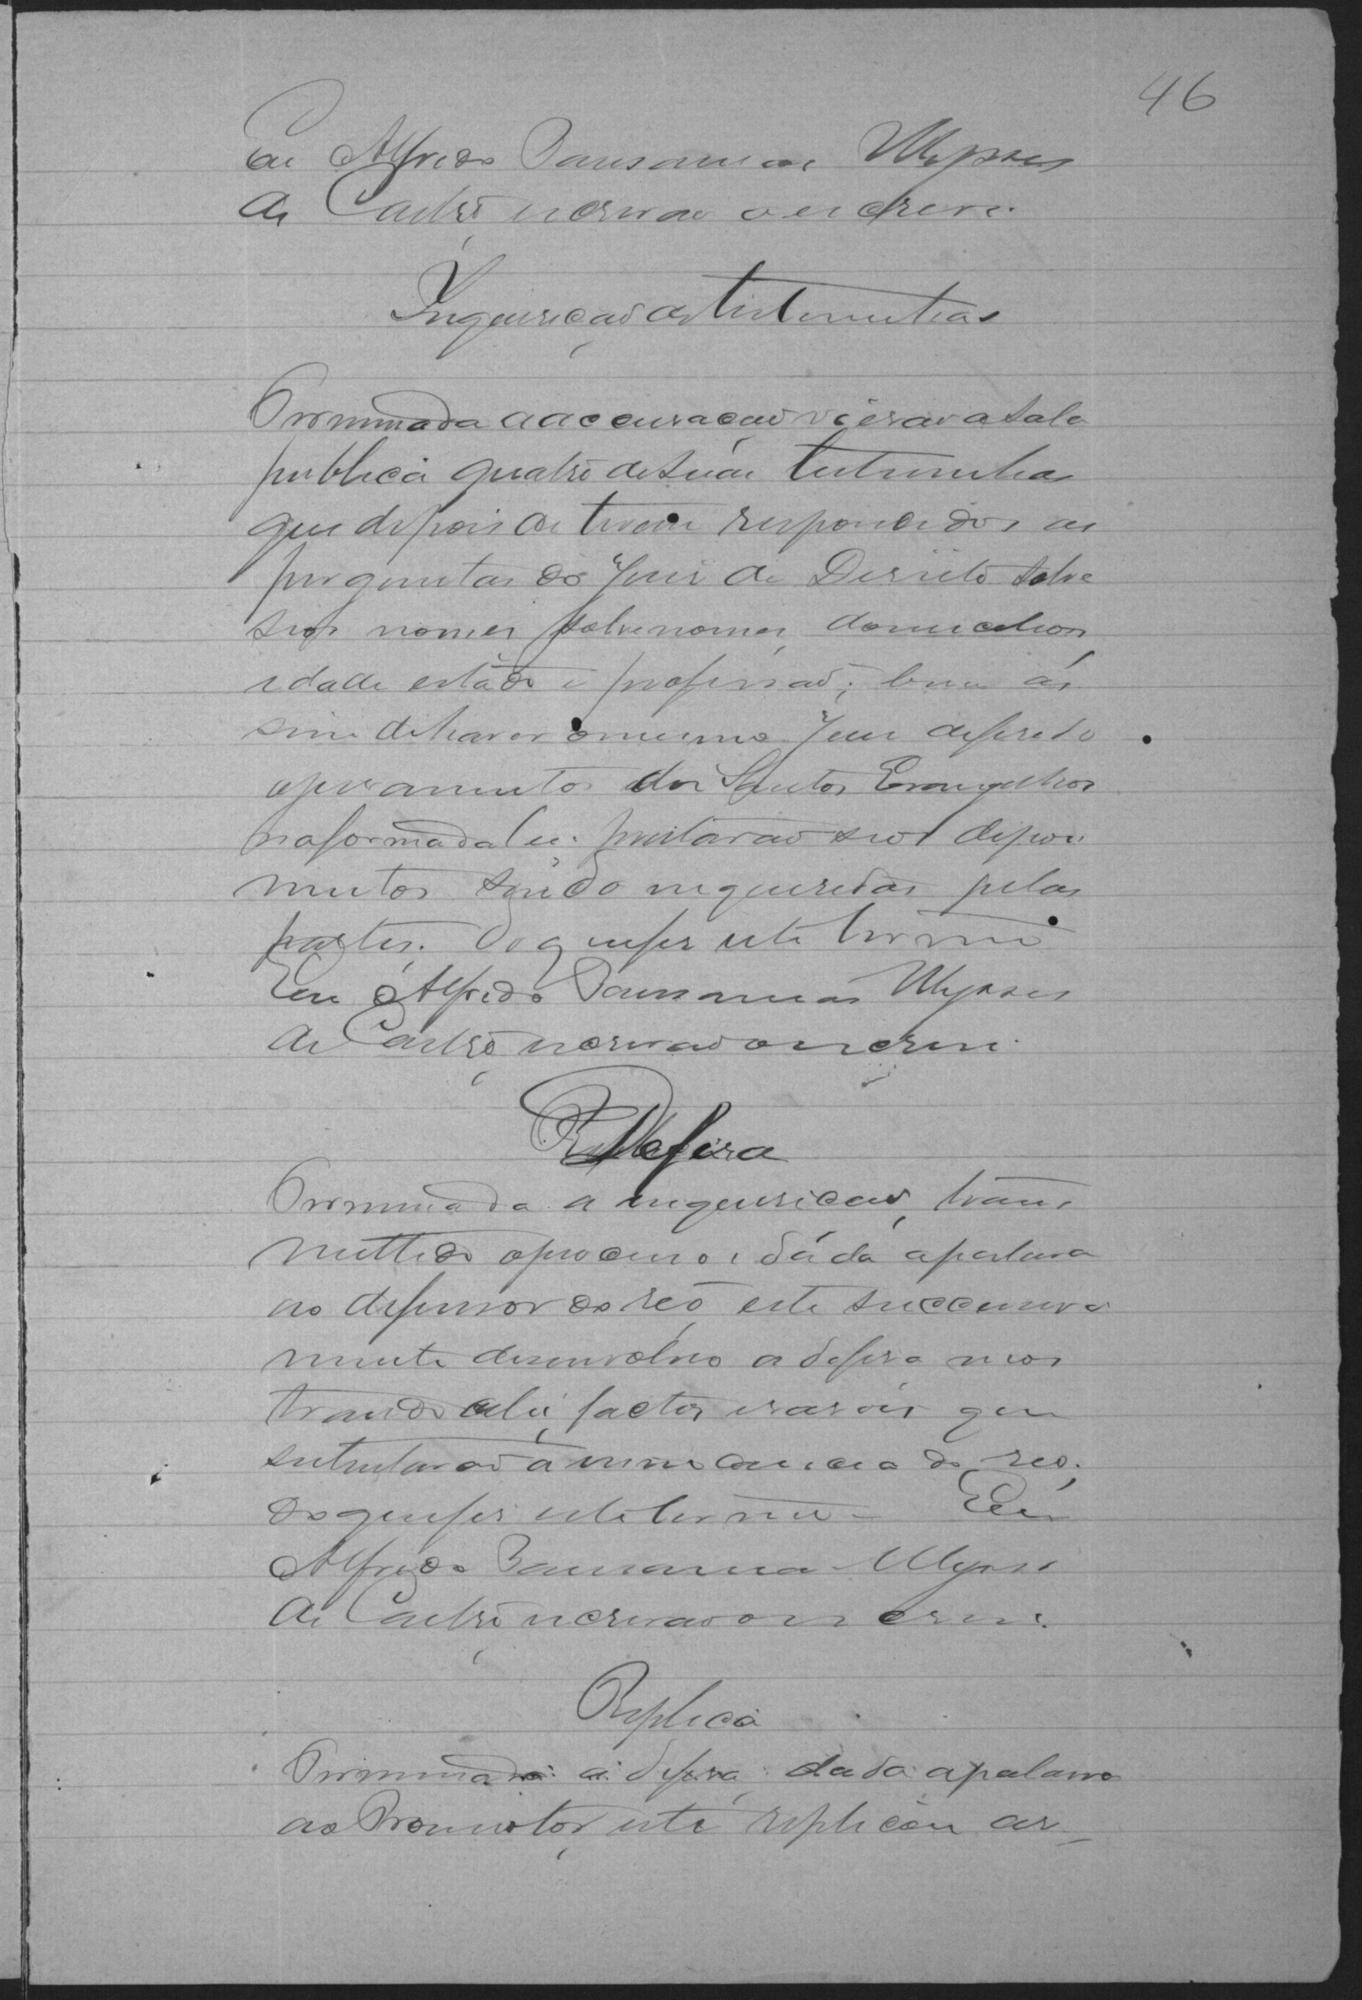 46
Eu Alfredo Pausanias Ulysses
de Castro escrivaõ o escrevi.
Inquiriçaõ de testemunhas
Terminada a accusaçaõ vieraõ a sala
publica quatro de suas testemunhas
que depois de terem respondidos as
perguntas do Juis de Direito sobre
seos nomes sobrenomes, domicilios,
idade estado e profissaõ; bem as
sim de haver o mesmo Juis deferido
o juramentos dos Santos Evangelhos
na forma da lei. prestaraõ seos depoi
mentos sendo inqueridas pelas
partes. Do que fis este termo
Eu Alfredo Pausanias Ulysses
de Castro escrivaõ o escrevi.
Defesa
Terminada a inquiriçaõ, trans
mettido o processo e dada a palavra
ao defensor do reo, este successiva
mente desenvolveo a defesa mos
trando a lei, factos e rasões que
sustentavaõ a innocencia do reo;
do que fis este termo. Eu
Alfredo Pausanias Ulysses
de Castro escrivaõ o escrevi.
Replica
Terminada a defesa, dada a palavra
ao Promotor, este replicou as